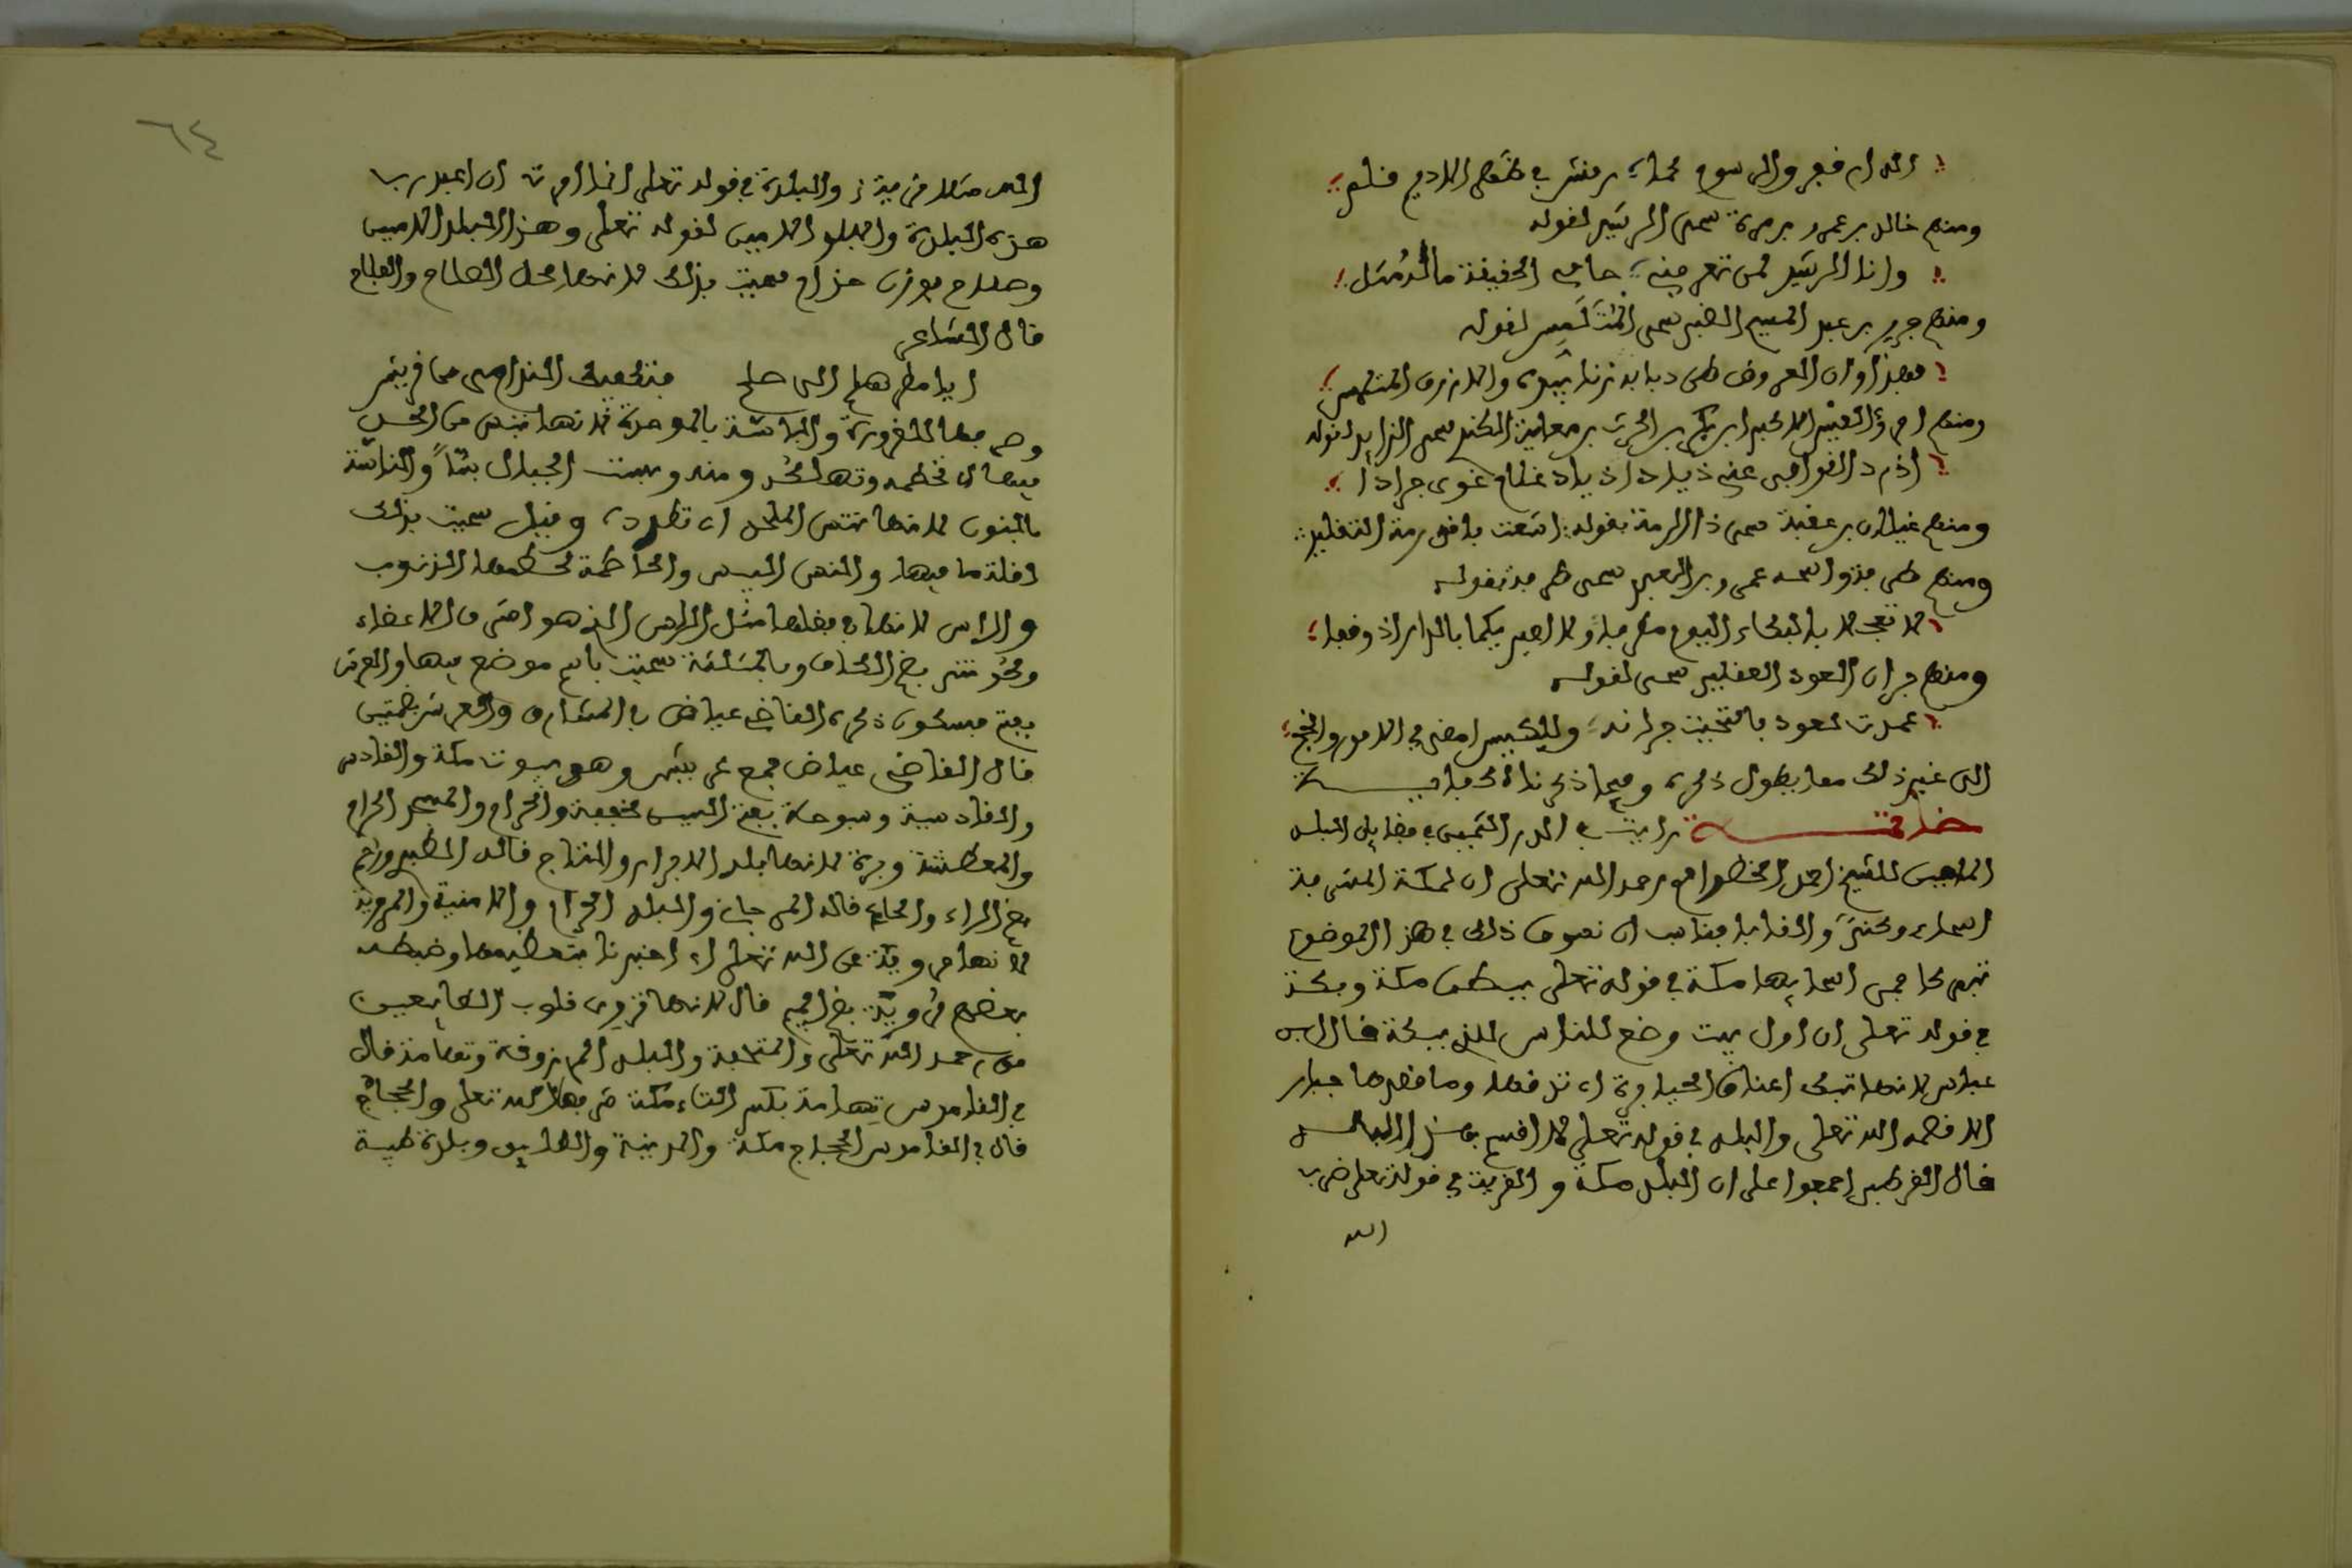 الدار قفر والرسوم كما رقش في ظهر الاديم قلم
ومنهم خالد بن عمرو بن مرة سمى الشريد لقوله
وانا الشريد لمن تعرفني حامي الحقيقة ما له مثل
ومنهم جرير بن عبد المسيح الضبي سمى المتلمس لقوله
فهذا اوان العرض طن ذبابه زنابيره والازرق المتلمس
ومنهم امرؤ القيس الاكبر بن بكر بن الحرث بن معاوية الكندي سمى الذايد لقوله
اذود القوافي عني ذيادا ذياد غلام غوي جرادا
ومنهم غيلان بن عقبة سمى ذا الرمة بقوله اشعث باقي رمة التقليد
ومنهم طرفة واسمه عمرو بن العبد سمى طرفة بقوله
لا تعجلا بالبكاء اليوم مطرفا ولا اميريكما بالدار اذ وقفا
ومنهم جران العود العقيلي سمى لقوله
عمدت لعود فالتحيت جرانه وللكيس امضى في الامور وانجح
الى غير ذلك مما يطول ذكره وفيما ذكرناه كفاية
خاتمة رايت في الدر الثمين في فضايل البلد
الامين للشيخ احمد الحضراوي رحمه الله تعلى ان لمكة المشرفة
اسماء وكنى والقابا فناسب ان نسوق ذلك في هذا الموضوع
تتميما فمن اسمايها مكة في قوله تعلى ببطن مكة وبكة
في قوله تعلى ان اول بيت وضع للناس للذي ببكة قال ابن
عباس لانها تبك اعناق الجبابرة اي تدقها وما قصدها جبار
الا قصمه الله تعلى والبلد في قوله تعلى لا اقسم بهذا البلد
قال القرطبي اجمعوا على ان البلد مكة والقرية في قوله تعلى ضرب
الله
٦٤
الله مثلا قرية والبلدة في قوله تعلى انما امرت ان اعبد رب
هذه البلدة والبلد الامين لقوله تعلى وهذا البلد الامين
وصلاح بوزن حزام سميت بذلك لانها محل الصلاح والفلاح
قال الشاعر
ايا مطر هلم الى صلاح فتكفيك الندامى من قريش
وهي والباسة بالموحدة لانها تبس من الحد
فيها اي تحطمه وتهلكه ومنه وبست الجبال بسا والناسة
بالنون لانها تنس الملحد اي تطرده وقيل سميت بذلك
لقلة ما فيها والنس اليبس والحاطمة لحطمها الذنوب
والراس لانها في فضلها مثل الراس الذي هو اشرف الاعضاء
وكوثى بضم الكاف وبالمثلثة سميت باسم موضع فيها والعرش
بفتح فسكون ذكره القاضي عياض في المشارق والعرش بضمتين
قال القاضي عياض جمع عرش وهو بيوت مكة والقادس
والقادسية وسبوحة بفتح السين مخففة والحرام والمسجد الحرام
والمعطشة وبرة لانها بلد الابرار والرتاج قاله الطبري ورحم
بضم الراء والحاء قاله المرجاني والبلد الحرام والامنية والمروية
لانها مروية عن الله تعلى اي اخبرنا بتعظيمها وضبطه
بعضهم مروية بضم الميم قال لانها تروي قلوب الطايعين
من رحمة الله تعلى والمتحفة والبلد المرزوقة وتهامة قال
في القاموس تهامة بكسر التاء مكة شرفها الله تعلى والحجاز
قال في القاموس الحجاز مكة والمدينة والطايف وبلدة طيبة